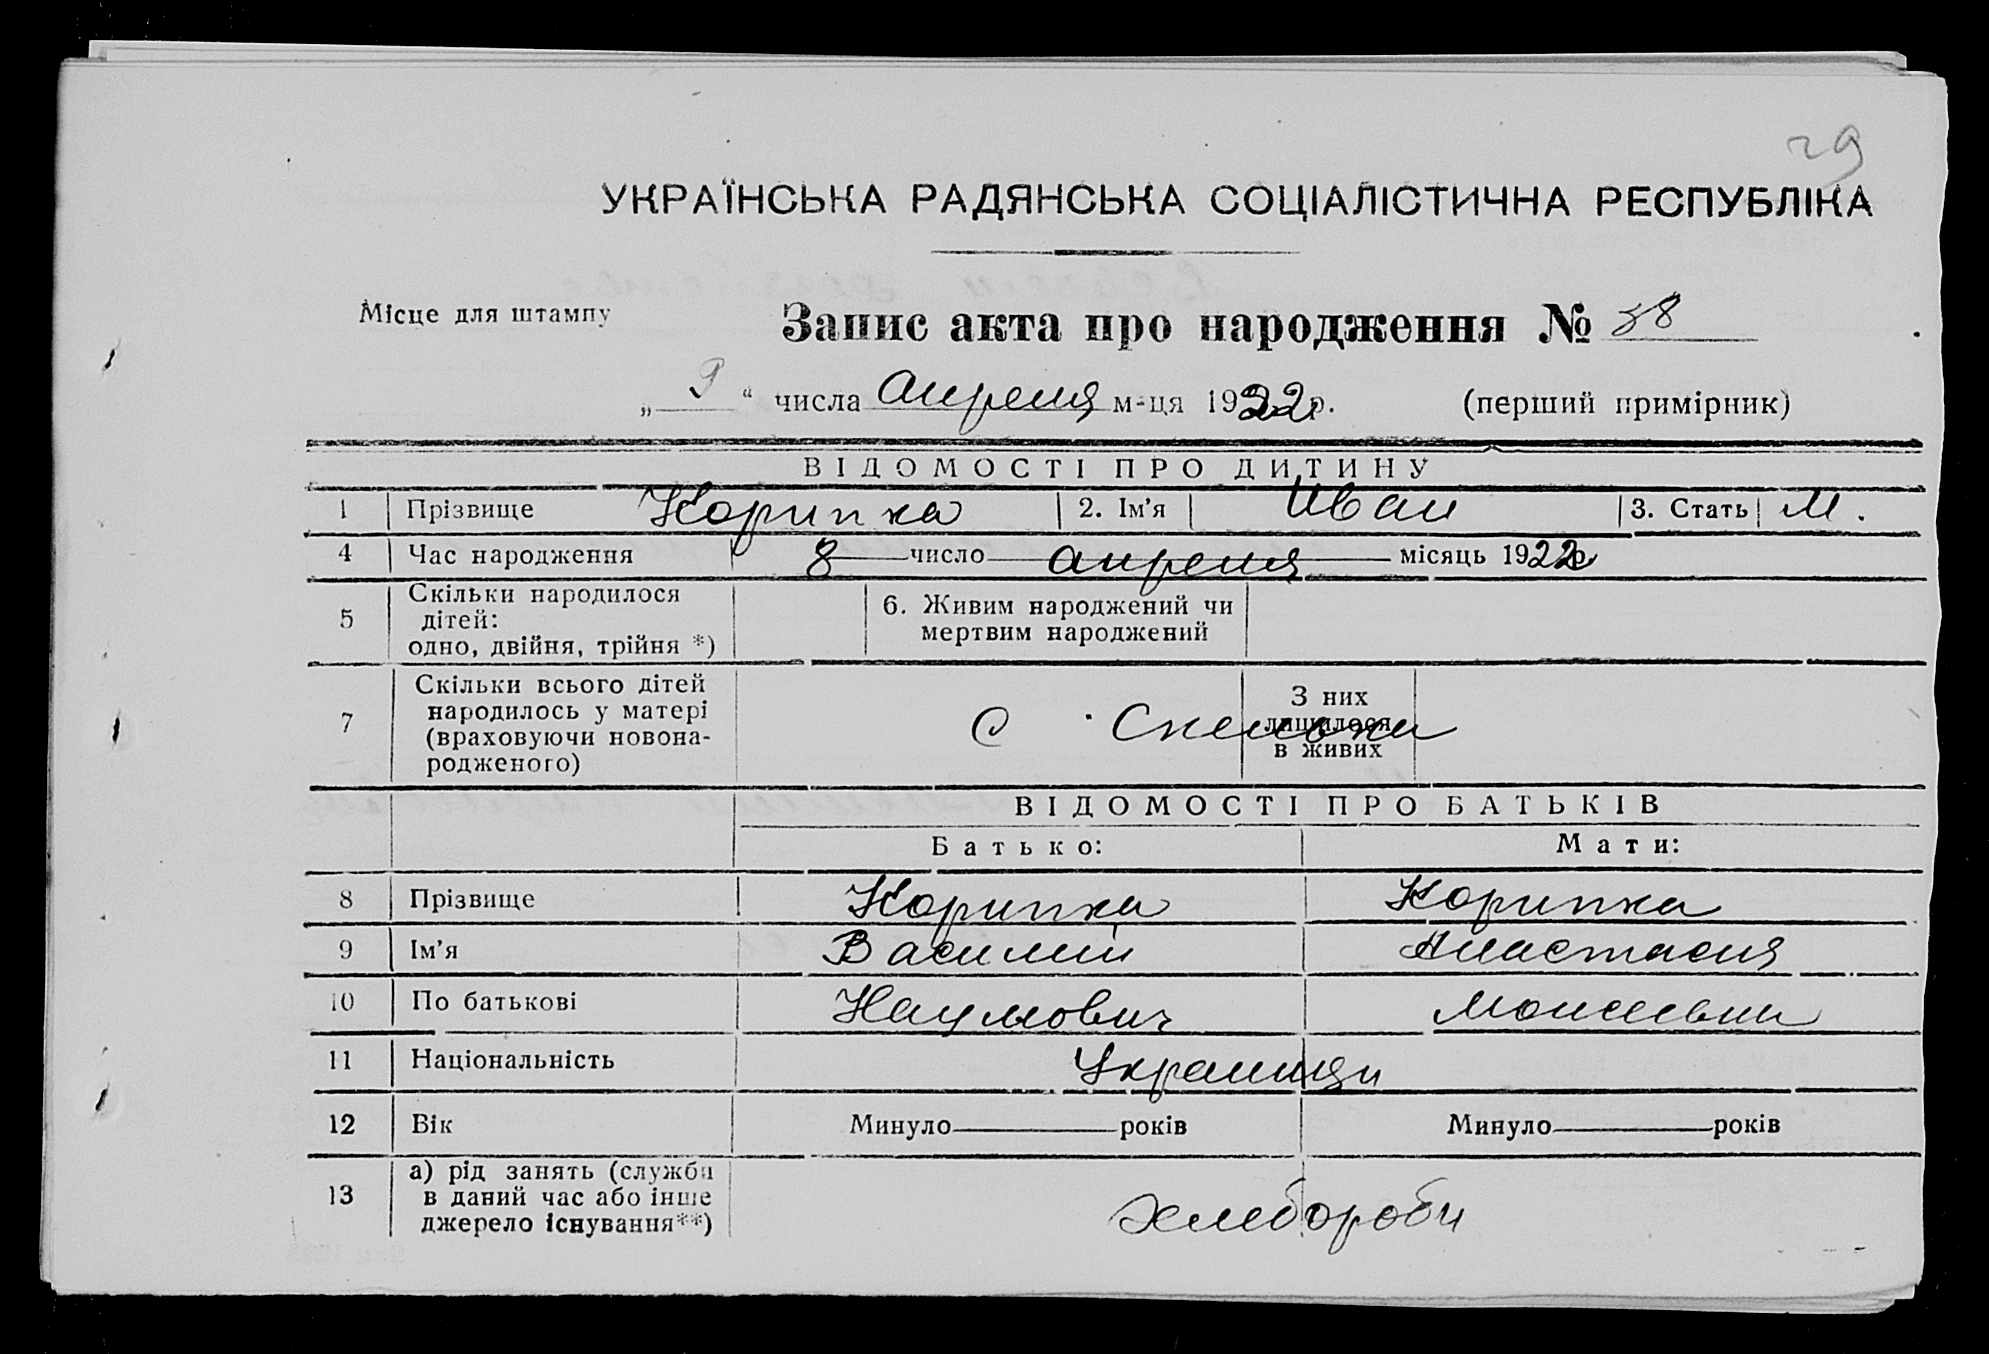 29
УКРАЇНСЬКА РАДЯНСЬКА СОЦІАЛІСТИЧНА РЕСПУБЛІКА
Місце для штампу
Запис акта про народження № 38
„ 9 “ числа Апреля м-ця 1922 р. (перший примірник)
ВІДОМОСТІ ПРО ДИТИНУ
1 Прізвище Корипка 2. Ім’я Иван 3. Стать М.
4 Час народження 8 число апреля місяць 1922 р
5 Скільки народилося
дітей:
одно, двійня, трійня *)
6. Живим народжений чи
мертвим народжений
7 Скільки всього дітей
народилось у матері
(враховуючи новона-
родженого)
С. Скельки
З них
лишилося
в живих
ВІДОМОСТІ ПРО БАТЬКІВ
Батько: Мати:
8 Прізвище Корипка Корипка
9 Ім’я Василий Анастасия
10 По батькові Наумович Моисеевна
11 Національність Украинци
12 Вік Минуло років Минуло років
13 а) рід занять (служби
в даний час або інше
джерело існування**)
хлебороби